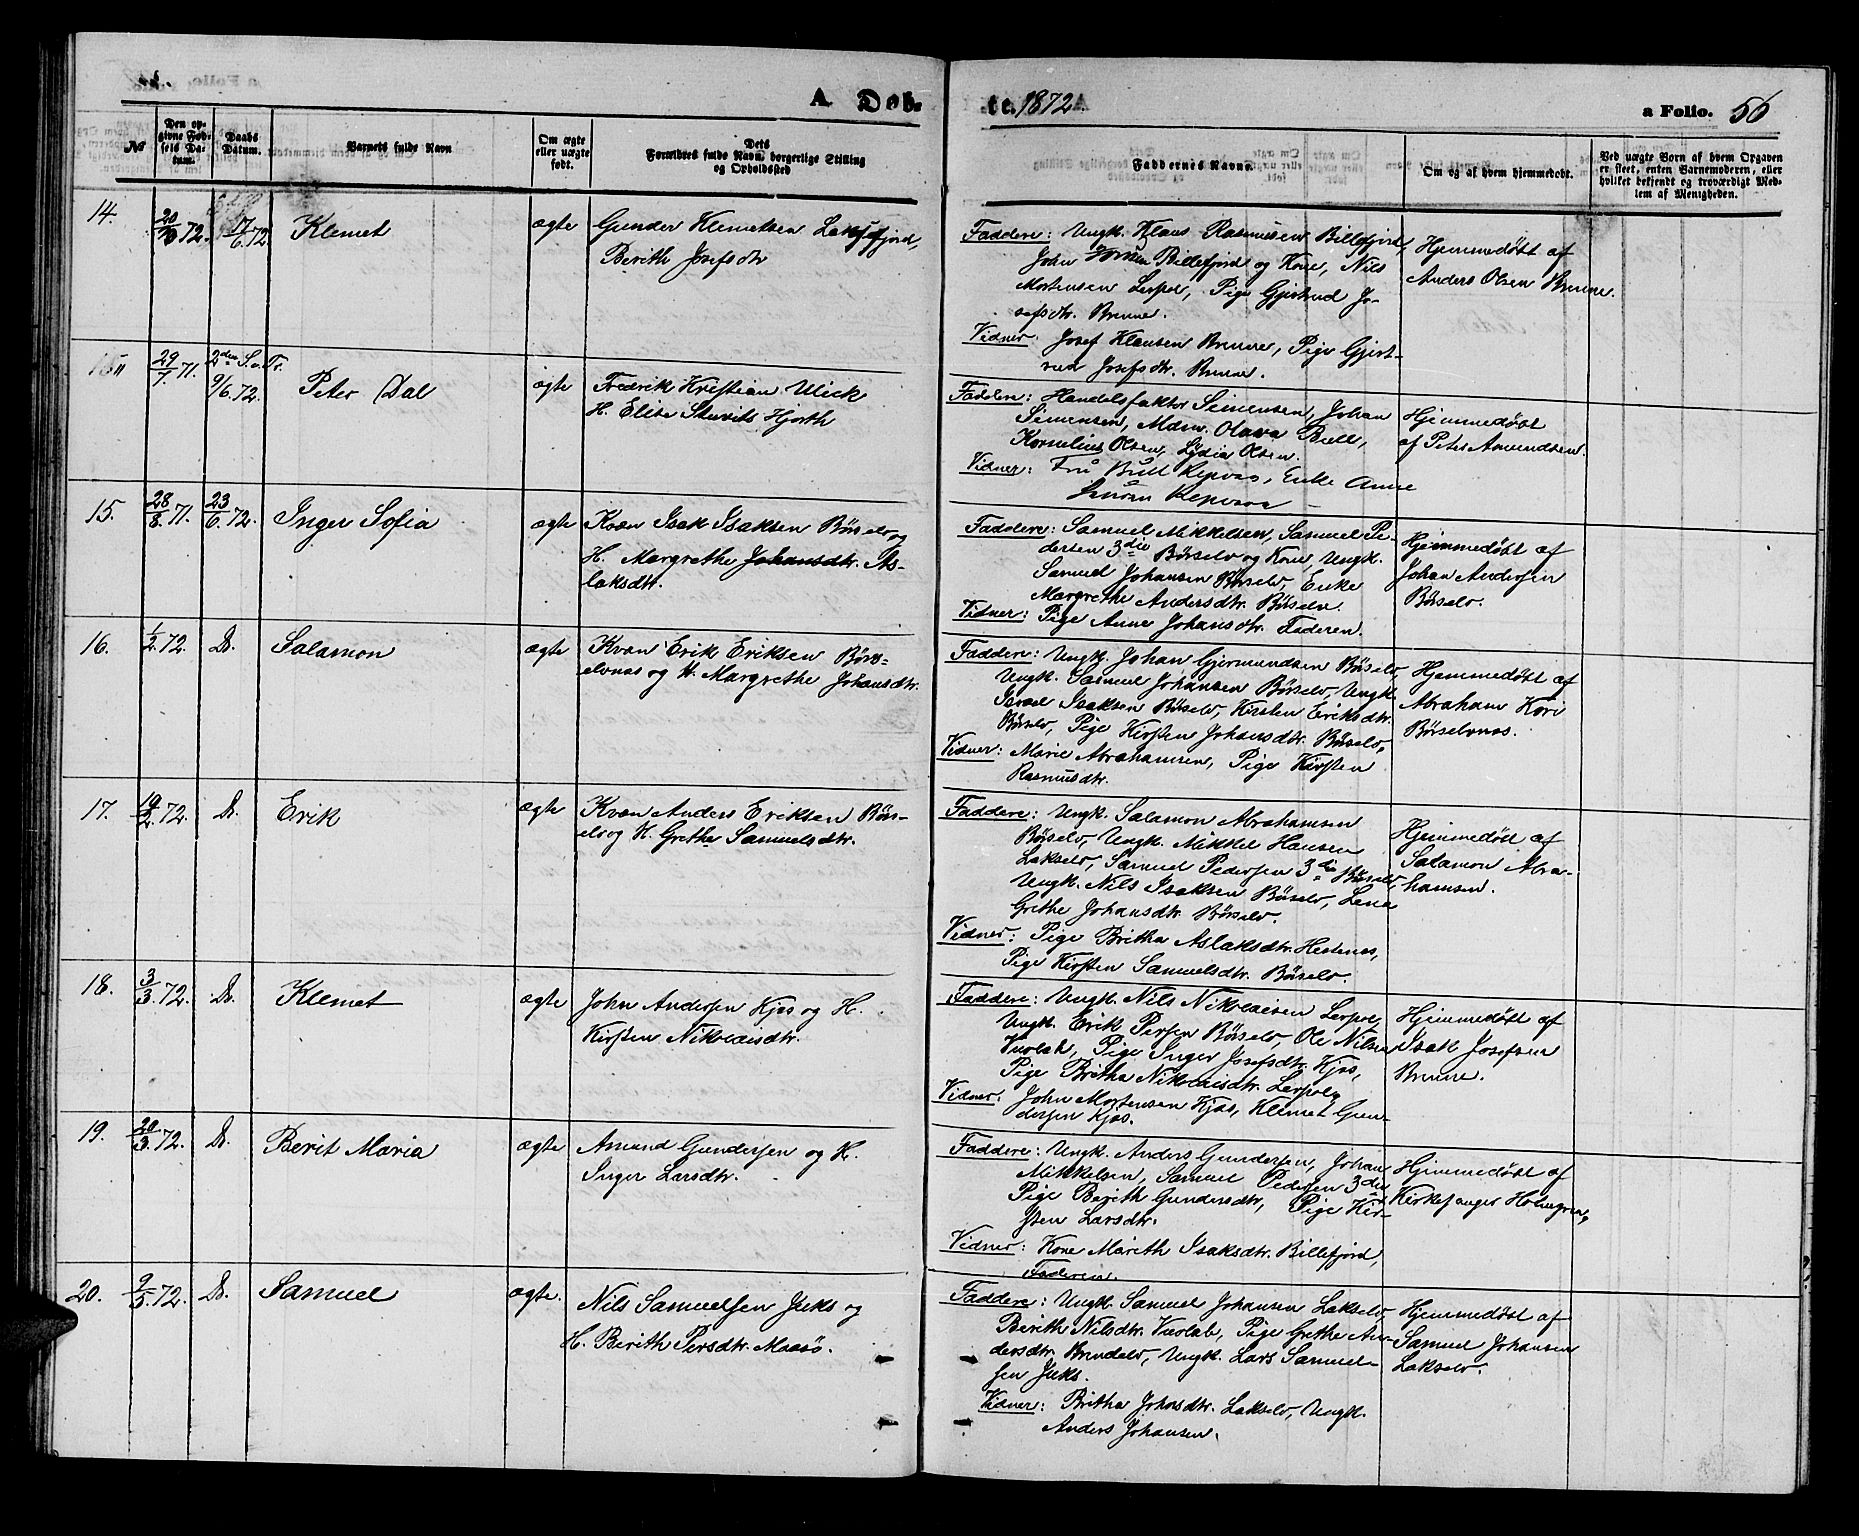 A Døb-
te. 1872.
a Folio. 56
No
Den op-
givne Fød-
sels Da-
tum.
Daabs
Datum.
Barnets fulde Navn
Om ægte
eller uægte
født.
Dets
Forældres fulde Navn, borgerlige Stilling
og Opholdssted
Faddernes Navne.
Om og af hvem hjemmedøbt.
Ved uægte Børn af hvem Opgaven
er skeet, enten Barnemoderen, eller
hvilket bekjendt og troværdigt Med-
lem af Menigheden.
14.
72.
17/6 72.
Klemet
ægte
Gunder Klemetsen Laksefjord,
Berith Josefsdtr
Faddere: Ungk. Klaus Rasmussen Billefjord,
John Billefjord og Kone, Nils
Mortensen Lerpol, Pige Gjertrud Jo-
sefsdtr. Brenne.
Vidner: Josef Klausen Brenne, Pige Gjert-
rud Josefsdtr. Brenne.
Hjemmedøbt af
Anders Olsen Brenne.
29/7 71.
2den S. e. Tr.
9/6 72.
Peter Dal
ægte
Fredrik Kristian Ulick
H. Elise Stuvits Hjorth
Faddere: Handelsfaktor Simensen, Johan
Simensen, Mdm. Olava Bull,
Kornelius Olsen, Lydia Olsen.
Vidner: Fru Bull Repvaag, Enke Anne
Hjemmedøbt
af Peter Amundsen.
15.
28/8 71.
23/6 72.
Inger Sofia
ægte
Kvæn Isak Isaksen Børselv og
H. Margrethe Johansdtr. As-
laksdtr.
Faddere: Samuel Mikkelsen, Samuel Pe-
dersen 3die Børselv og Kone, Ungk.
Samuel Johansen Børselv, Enke
Margrethe Andersdtr. Børselv.
Vidner: Pige Anne Johansdtr. Faderen.
Hjemmedøbt af
Johan Andersen
Børselv.
16.
1/2 72.
D.
Salamon
ægte
Kvæn Erik Eriksen Børs-
elvnæs og H. Margrethe Johansdtr.
Faddere: Ungk. Johan Gjermundsen Børselv,
Ungk. Samuel Johansen Børselv, Ungk.
Israel Isaksen Børselv, Kirsten Eriksdtr.
Børselv, Pige Kirsten Johansdtr. Børselv,
Vidner: Marie Abrahamsen, Pige Kirsten
Rasmusdtr.
Hjemmedøbt af
Abraham Kori
Børselvnæs.
17.
19/2 72.
D.
Erik
ægte
Kvæn Anders Eriksen Børs-
elv og H. Grethe Samuelsdtr.
Faddere: Ungk. Salamon Abrahamsen
Børselv, Ungk. Mikkel Hansen
Lakselv, Samuel Pedersen 3die Børselv,
Ungk. Nils Isaksen Børselv, Lena
Grethe Johansdtr. Børselv.
Vidner: Pige Britha Aslaksdtr. Hestenæs,
Pige Kirsten Samuelsdtr. Børselv.
Hjemmedøbt af
Salamon Abra-
hamsen.
18.
3/3 72.
D.
Klemet
ægte
John Andersen Kjæs og H.
Kirsten Nikolaisdtr.
Faddere: Ungk. Nils Nikolaisen Lerpol,
Ungk. Erik Persen Børselv, Ole Nilsen
Vuolab, Pige Inger Josefsdtr. Kjæs,
Pige Britha Nikolaisdtr. Lerpol,
Vidner: John Mortensen Kjæs, Klemet Gun-
dersen Kjæs.
Hjemmedøbt af
Isak Josefsen
Brenne.
19.
20/3 72.
D.
Berit Maria
ægte
Amund Gundersen og H.
Inger Larsdtr.
Faddere: Ungk. Anders Gundersen, Johan
Mikkelsen, Samuel Pedersen 3die
Pige Berith Gundersdtr, Pige Kir-
sten Larsdtr.
Vidner: Kone Marith Isaksdtr. Billefjord,
Faderen.
Hjemmedøbt af
Kirkesanger Holmgren.
20.
9/5 72.
D.
Samuel
ægte.
Nils Samuelsen Juks og
H. Berith Persdtr. Maasø.
Faddere: Ungk. Samuel Johansen Lakselv,
Berith Nilsdtr. Vuolab, Pige Grethe An-
dersdtr. Brendelv, Ungk. Lars Samuel-
sen Juks.
Vidner: Britha Johnsdtr. Lakselv, Ungk.
Anders Johansen.
Hjemmedøbt af
Samuel Johansen
Lakselv.